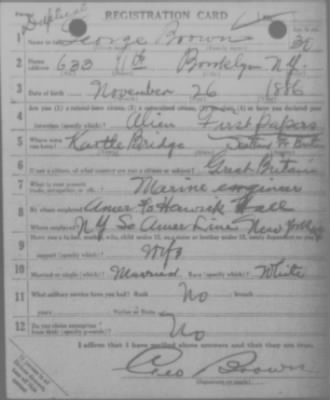 Duplicate
REGISTRATION CARD
1 Name in full George Brown 30
2 Home address 633 11th Brooklyn N.Y.
3 Date of birth November 26 1886
4 Are you (1) a natural-born citizen, (2) a naturalized citizen, (3) an alien, (4) or have you declared your
intention (specify which)? Alien First papers
5 Where were you born? Bridge
6 If not a citizen, of what country are you a citizen or subject? Great Britain
7 What is your present trade, occupation, or office? Marine engineer
8 By whom employed
Where employed N.Y. So Amer Line New York
9 Have you a father, mother, wife, child under 12, or a sister or brother under 12, solely dependent on you for
support (specify which)? Wife
10 Married or single (which)? Married Race (specify which)? White
11 What military service have you had? Rank No branch
years Nation or State
12 Do you claim exemption from draft (specify grounds)? No
I affirm that I have verified above answers and that they are true.
Geo Brown
(Signature or mark)